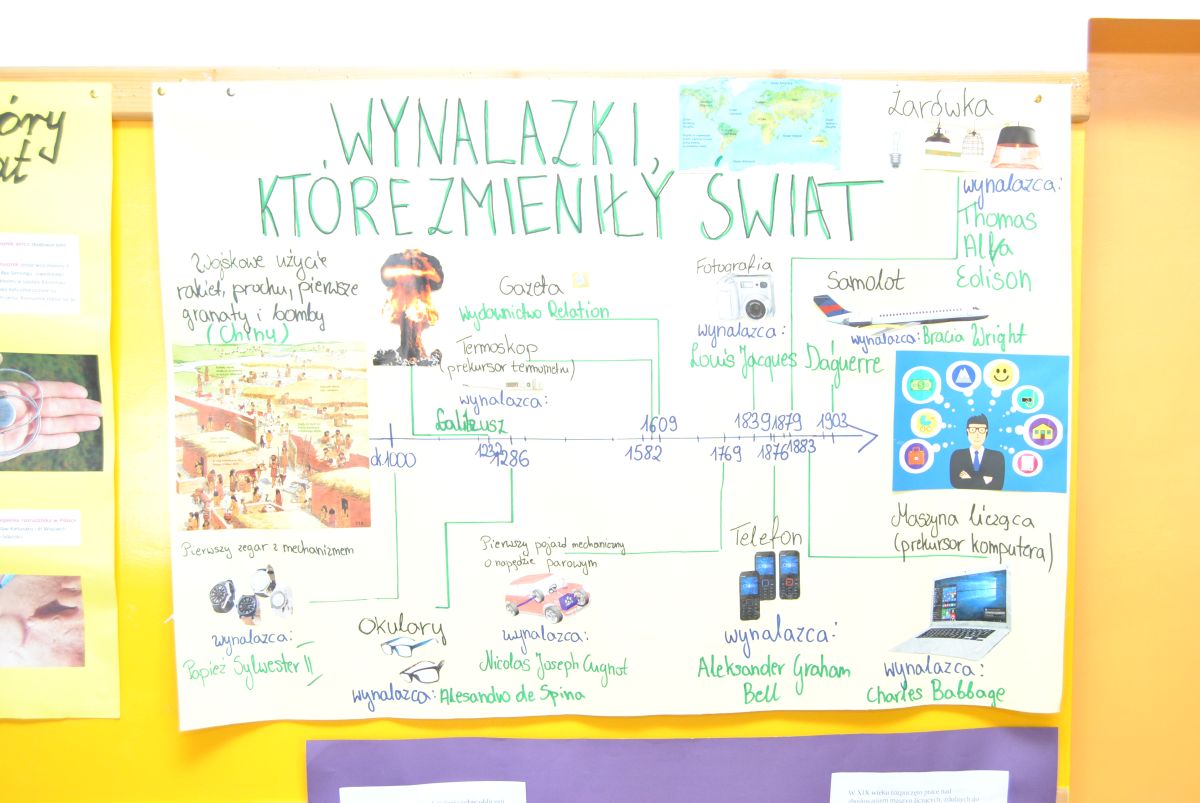 óry
at
WYNALAZKI,
KTÓRE ZMIENIŁY ŚWIAT
Żarówka
wynalazca:
Thomas
Alva
Edison
Wojskowe użycie
rakiet, prochu, pierwsze
granaty i bomby
(Chiny)
Gazeta
Wydawnictwo Relation
Termoskop
(prekursor termometru)
wynalazca:
Galileusz
Fotografia
wynalazca:
Louis Jacques Daguerre
Samolot
wynalazca: Bracia Wright
1609
1839 1879 1903
ok 1000
1232
1286
1582
1769
1876
1883
Pierwszy zegar z mechanizmem
wynalazca:
Papież Sylwester II
Okulary
wynalazca: Alesandro de Spina
Pierwszy pojazd mechaniczny
o napędzie parowym
wynalazca:
Nicolas Joseph Cugnot
Telefon
wynalazca:
Aleksander Graham
Bell
Maszyna licząca
(prekursor komputera)
wynalazca:
Charles Babbage
W XIX wieku rozpoczęto prace nad